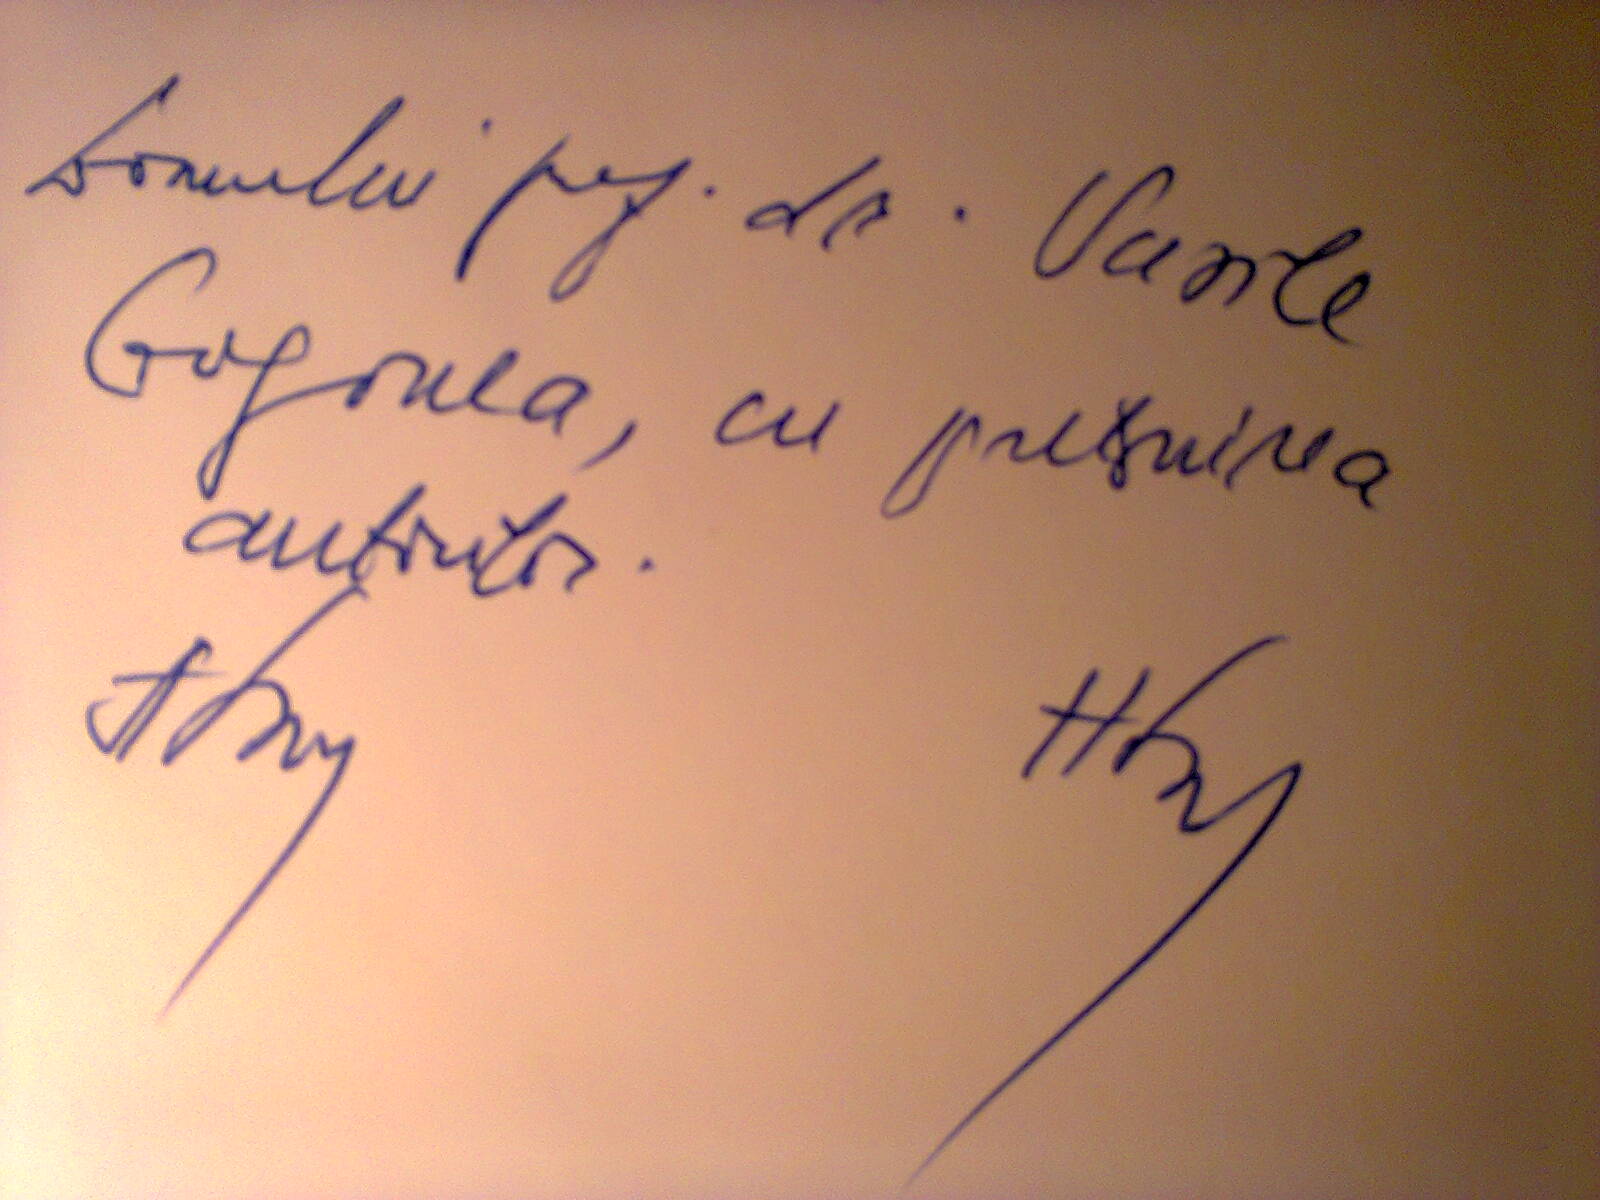 Domnului prof. dr. Vasile
Gogonea, cu prețuirea
autorilor.